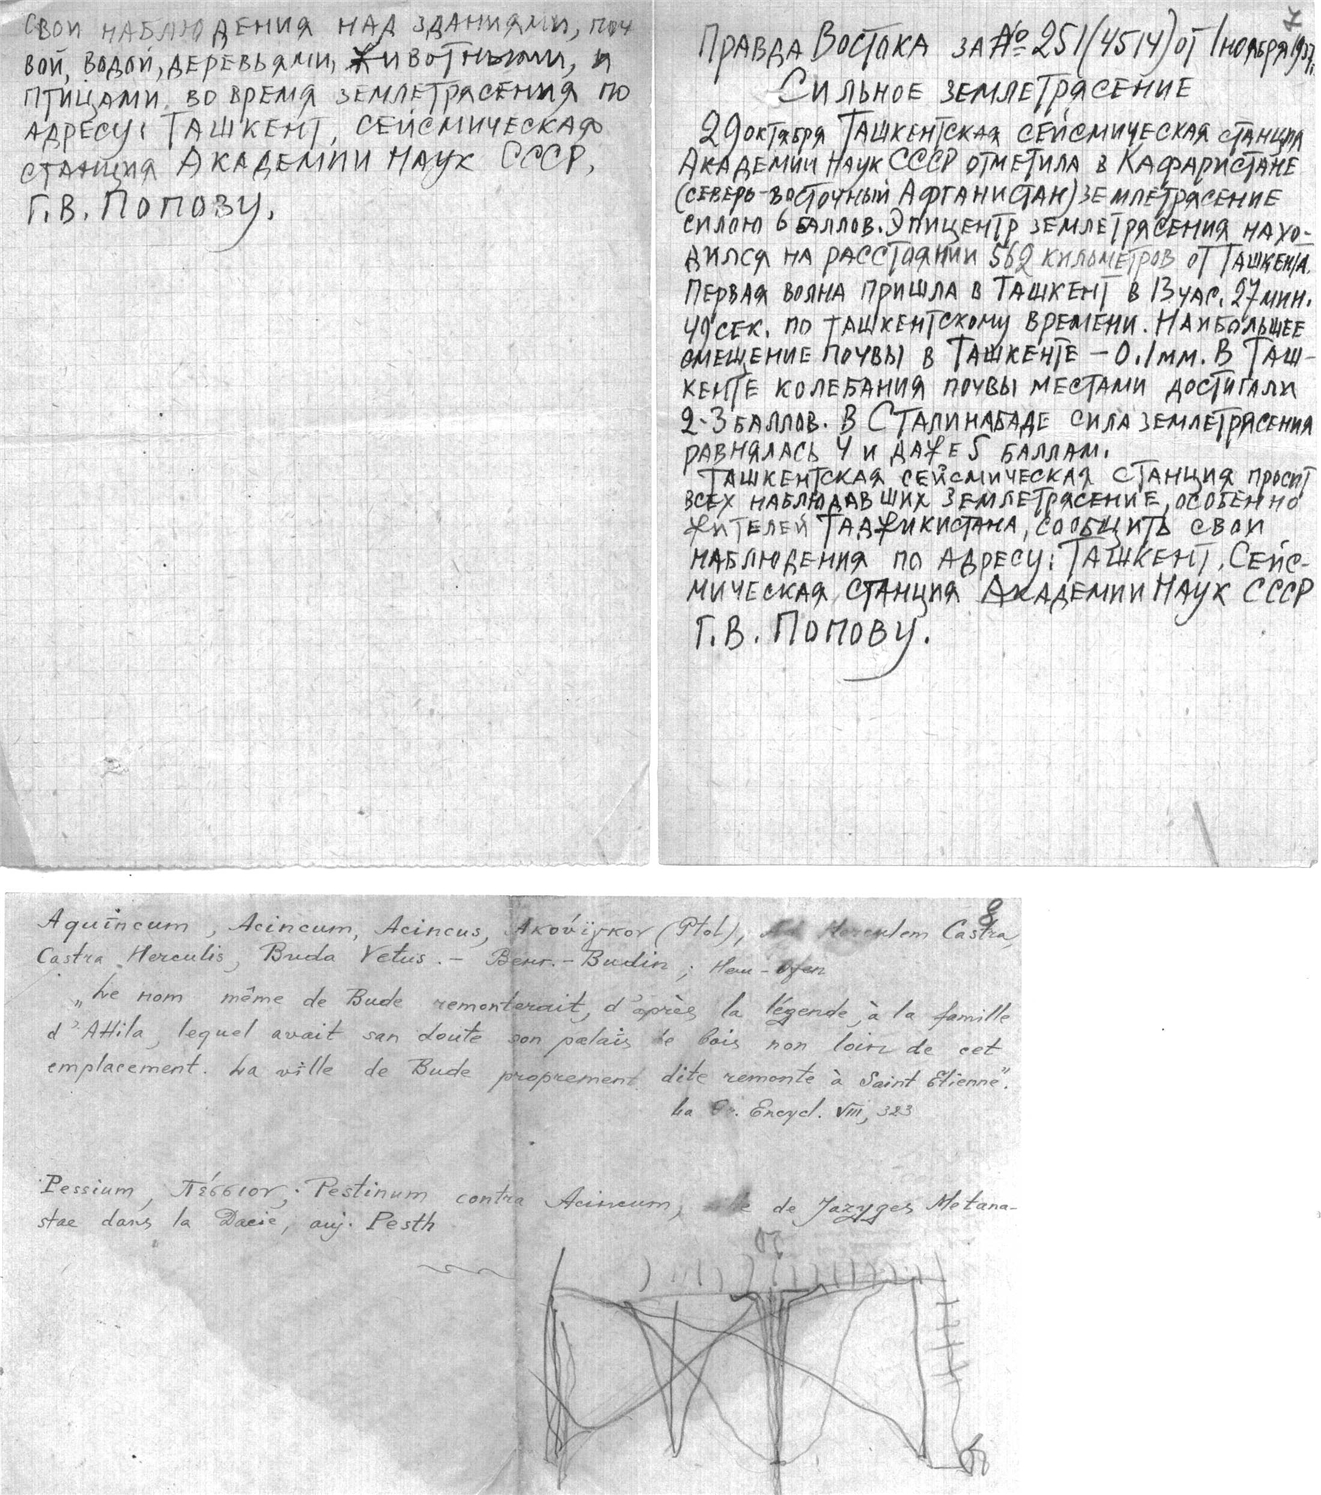 свои наблюдения над зданиями, поч
вой, водой, деревьями, животными, и
птицами во время землетрясения по
адресу: Ташкент, сейсмическая
станция Академии Наук СССР,
Г.В. Попову.
7
Правда Востока за № 251(4514) от 1 ноября 1937 г.
Сильное землетрясение
29 октября Ташкентская сейсмическая станция
Академии Наук СССР отметила в Кафаристане
(северо-восточный Афганистан) землетрясение
силою 6 баллов. Эпицентр землетрясения нахо-
дился на расстоянии 562 километров от Ташкента.
Первая волна пришла в Ташкент в 13 час. 27 мин.
49 сек. по ташкентскому времени. Наибольшее
смещение почвы в Ташкенте – 0.1 мм. В Таш-
кенте колебания почвы местами достигали
2-3 баллов. В Сталинабаде сила землетрясения
равнялась 4 и даже 5 баллам.
Ташкентская сейсмическая станция просит
всех наблюдавших землетрясение, особенно
жителей Таджикистана, сообщить свои
наблюдения по адресу: Ташкент, Сейс-
мическая станция Академии Наук СССР
Г.В. Попову.
8
Aquincum, Acincum, Acincus, Ακούϊγκον (Ptol), Ad Herculem Castra,
Castra Herculis, Buda Vetus. – Венг. – Budin; Нем – Ofen
„Le nom même de Bude remonterait, d'après la légende, à la famille
d'Attila, lequel avait san doute son palais de bois non loin de cet
emplacement. La ville de Bude proprement dite remonte à Saint Etienne".
La Gr. Encycl. VIII, 323
Pessium, Πέσσιον; Pestinum contra Acincum, ville de Jazyges Metana-
stae dans la Dacie, auj. Pesth
50